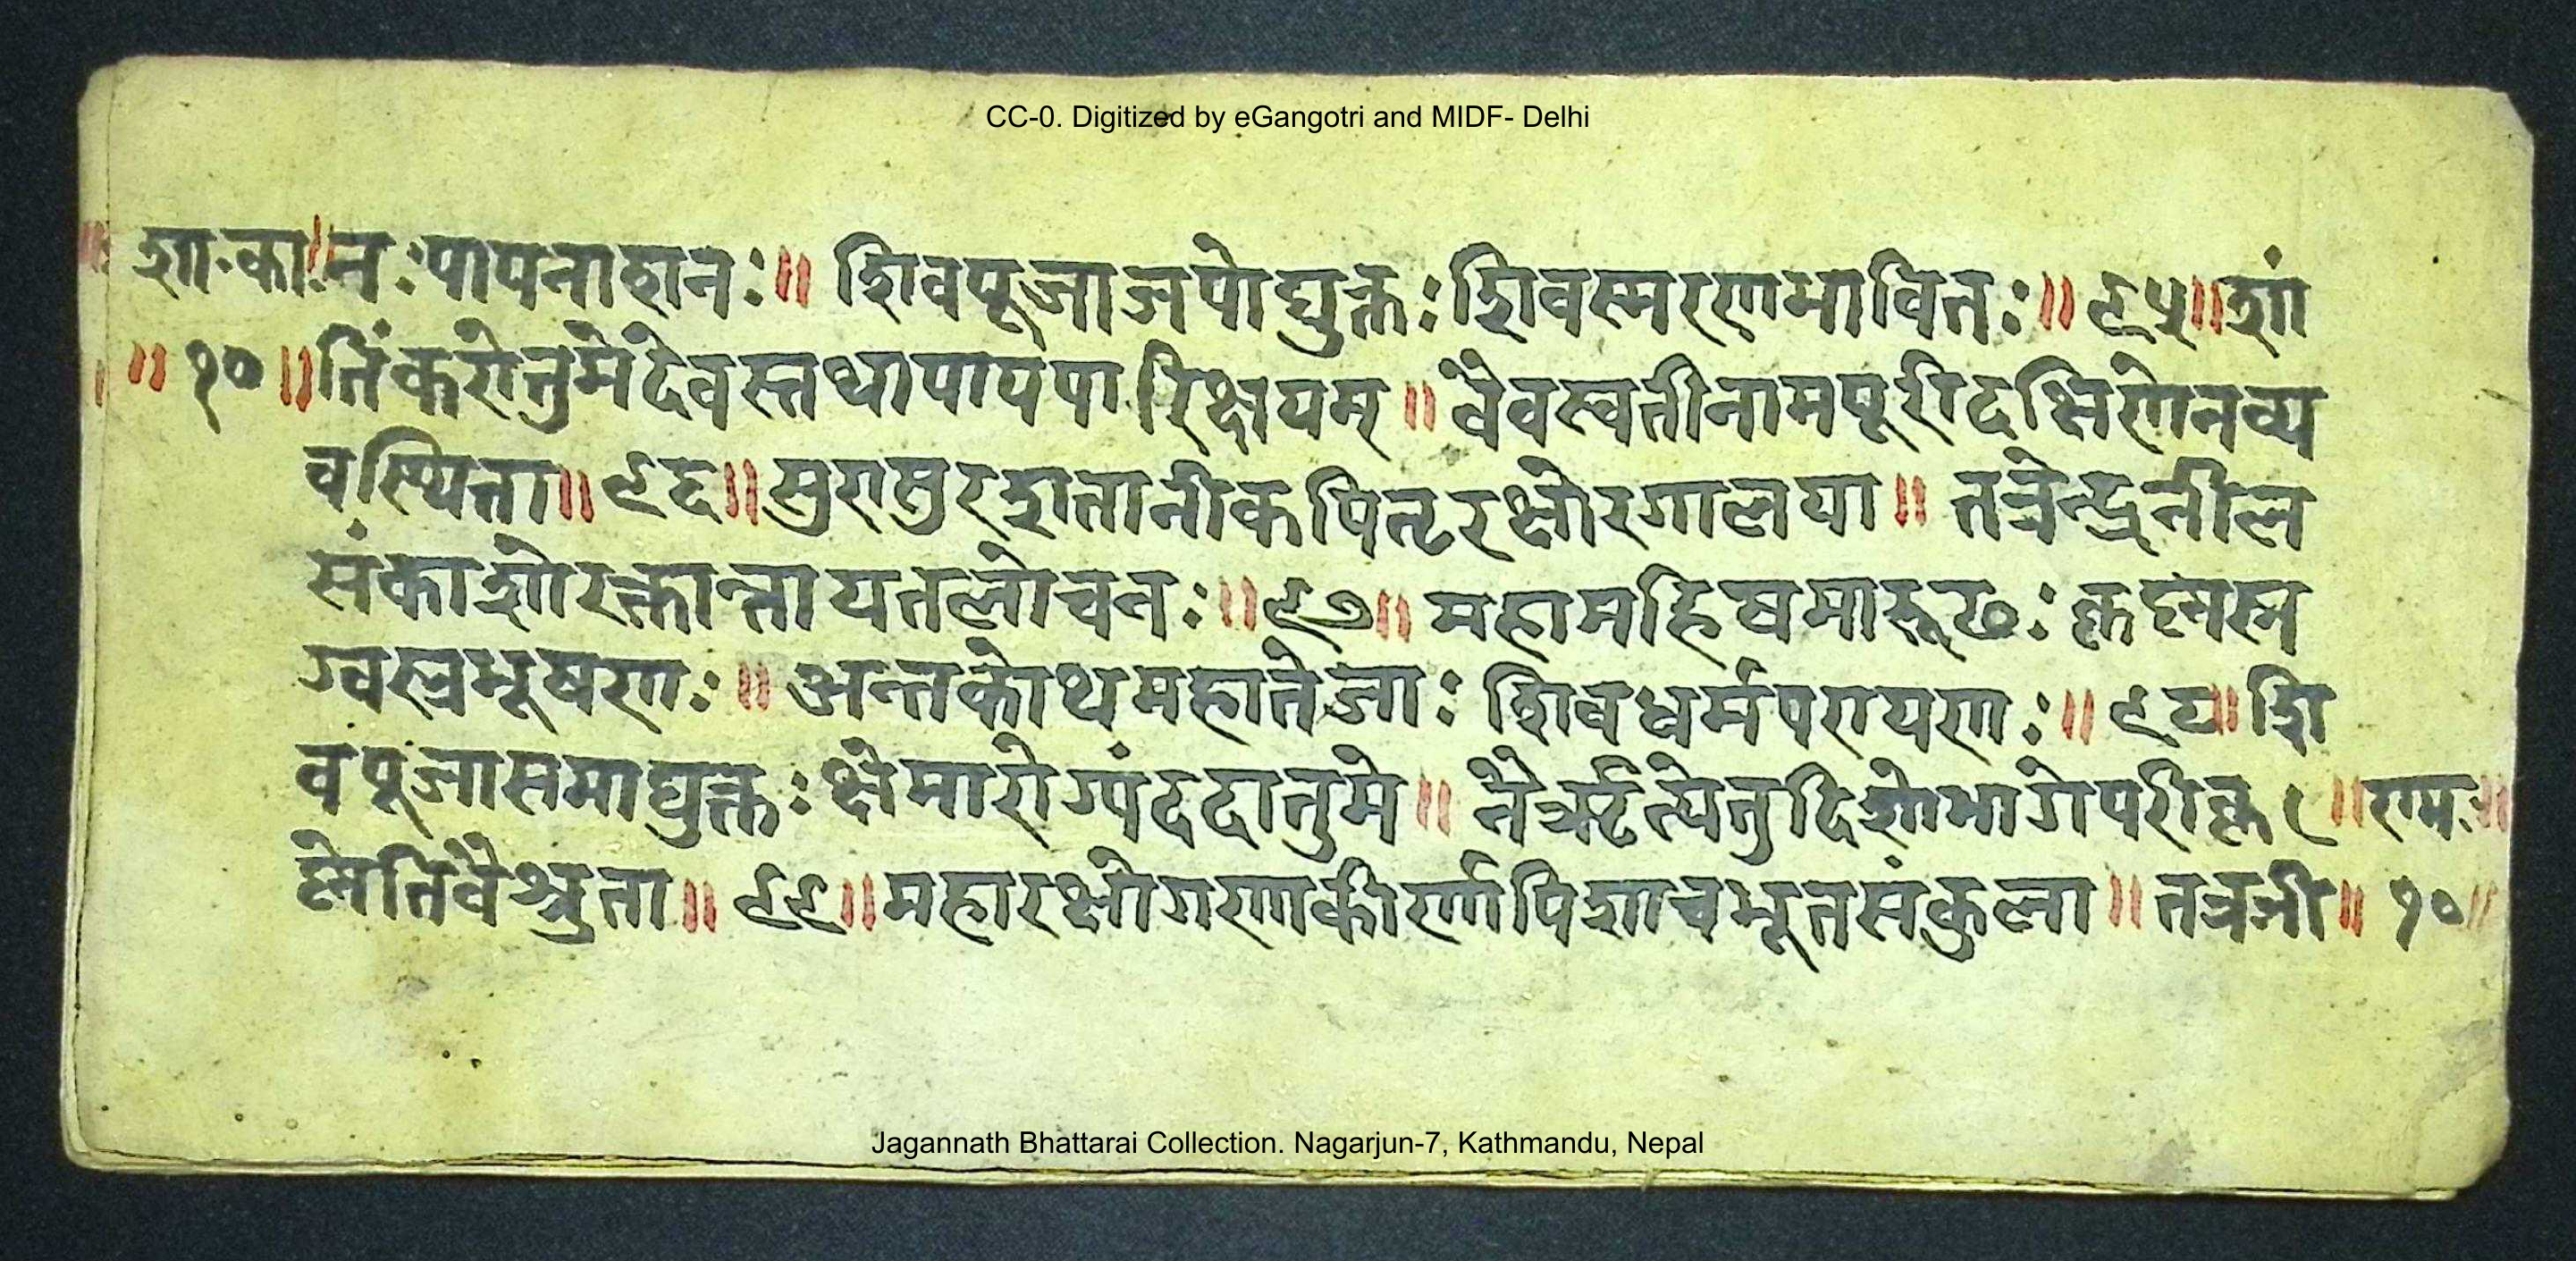 CC-0. Digitized by eGangotri and MIDF- Delhi
॥ शा॰का॥नः पापनाशनः॥ शिवपूजाजपोद्युक्तः शिवस्मरणभावितः॥९५॥शां
॥१०॥तिंकरोतुमेदेवस्तथापापपारिक्षयम्॥वैवस्वतीनामपूरीदक्षिणेनव्य
वस्थिता॥९६॥सुरासुरशतानीकपितृरक्षोरगालया॥ तत्रेन्द्रनील
संकाशोरक्तान्तायतलोचनः॥९७॥ महामहिषमारूढः कृष्णस्र
ग्वस्त्रभूषणः॥ अन्तकोथमहातेजाः शिवधर्मपरायणः॥९८॥शि
वपूजासमाद्युक्तः क्षेमारोग्यंददातुमे॥ नैरृत्येतुदिशोभागेपरीकृ ॥राम॥
ष्णेतिवैश्रुता॥९९॥महारक्षोगणाकीर्णापिशाचभूतसंकुला॥तत्रनी॥१०॥
Jagannath Bhattarai Collection. Nagarjun-7, Kathmandu, Nepal